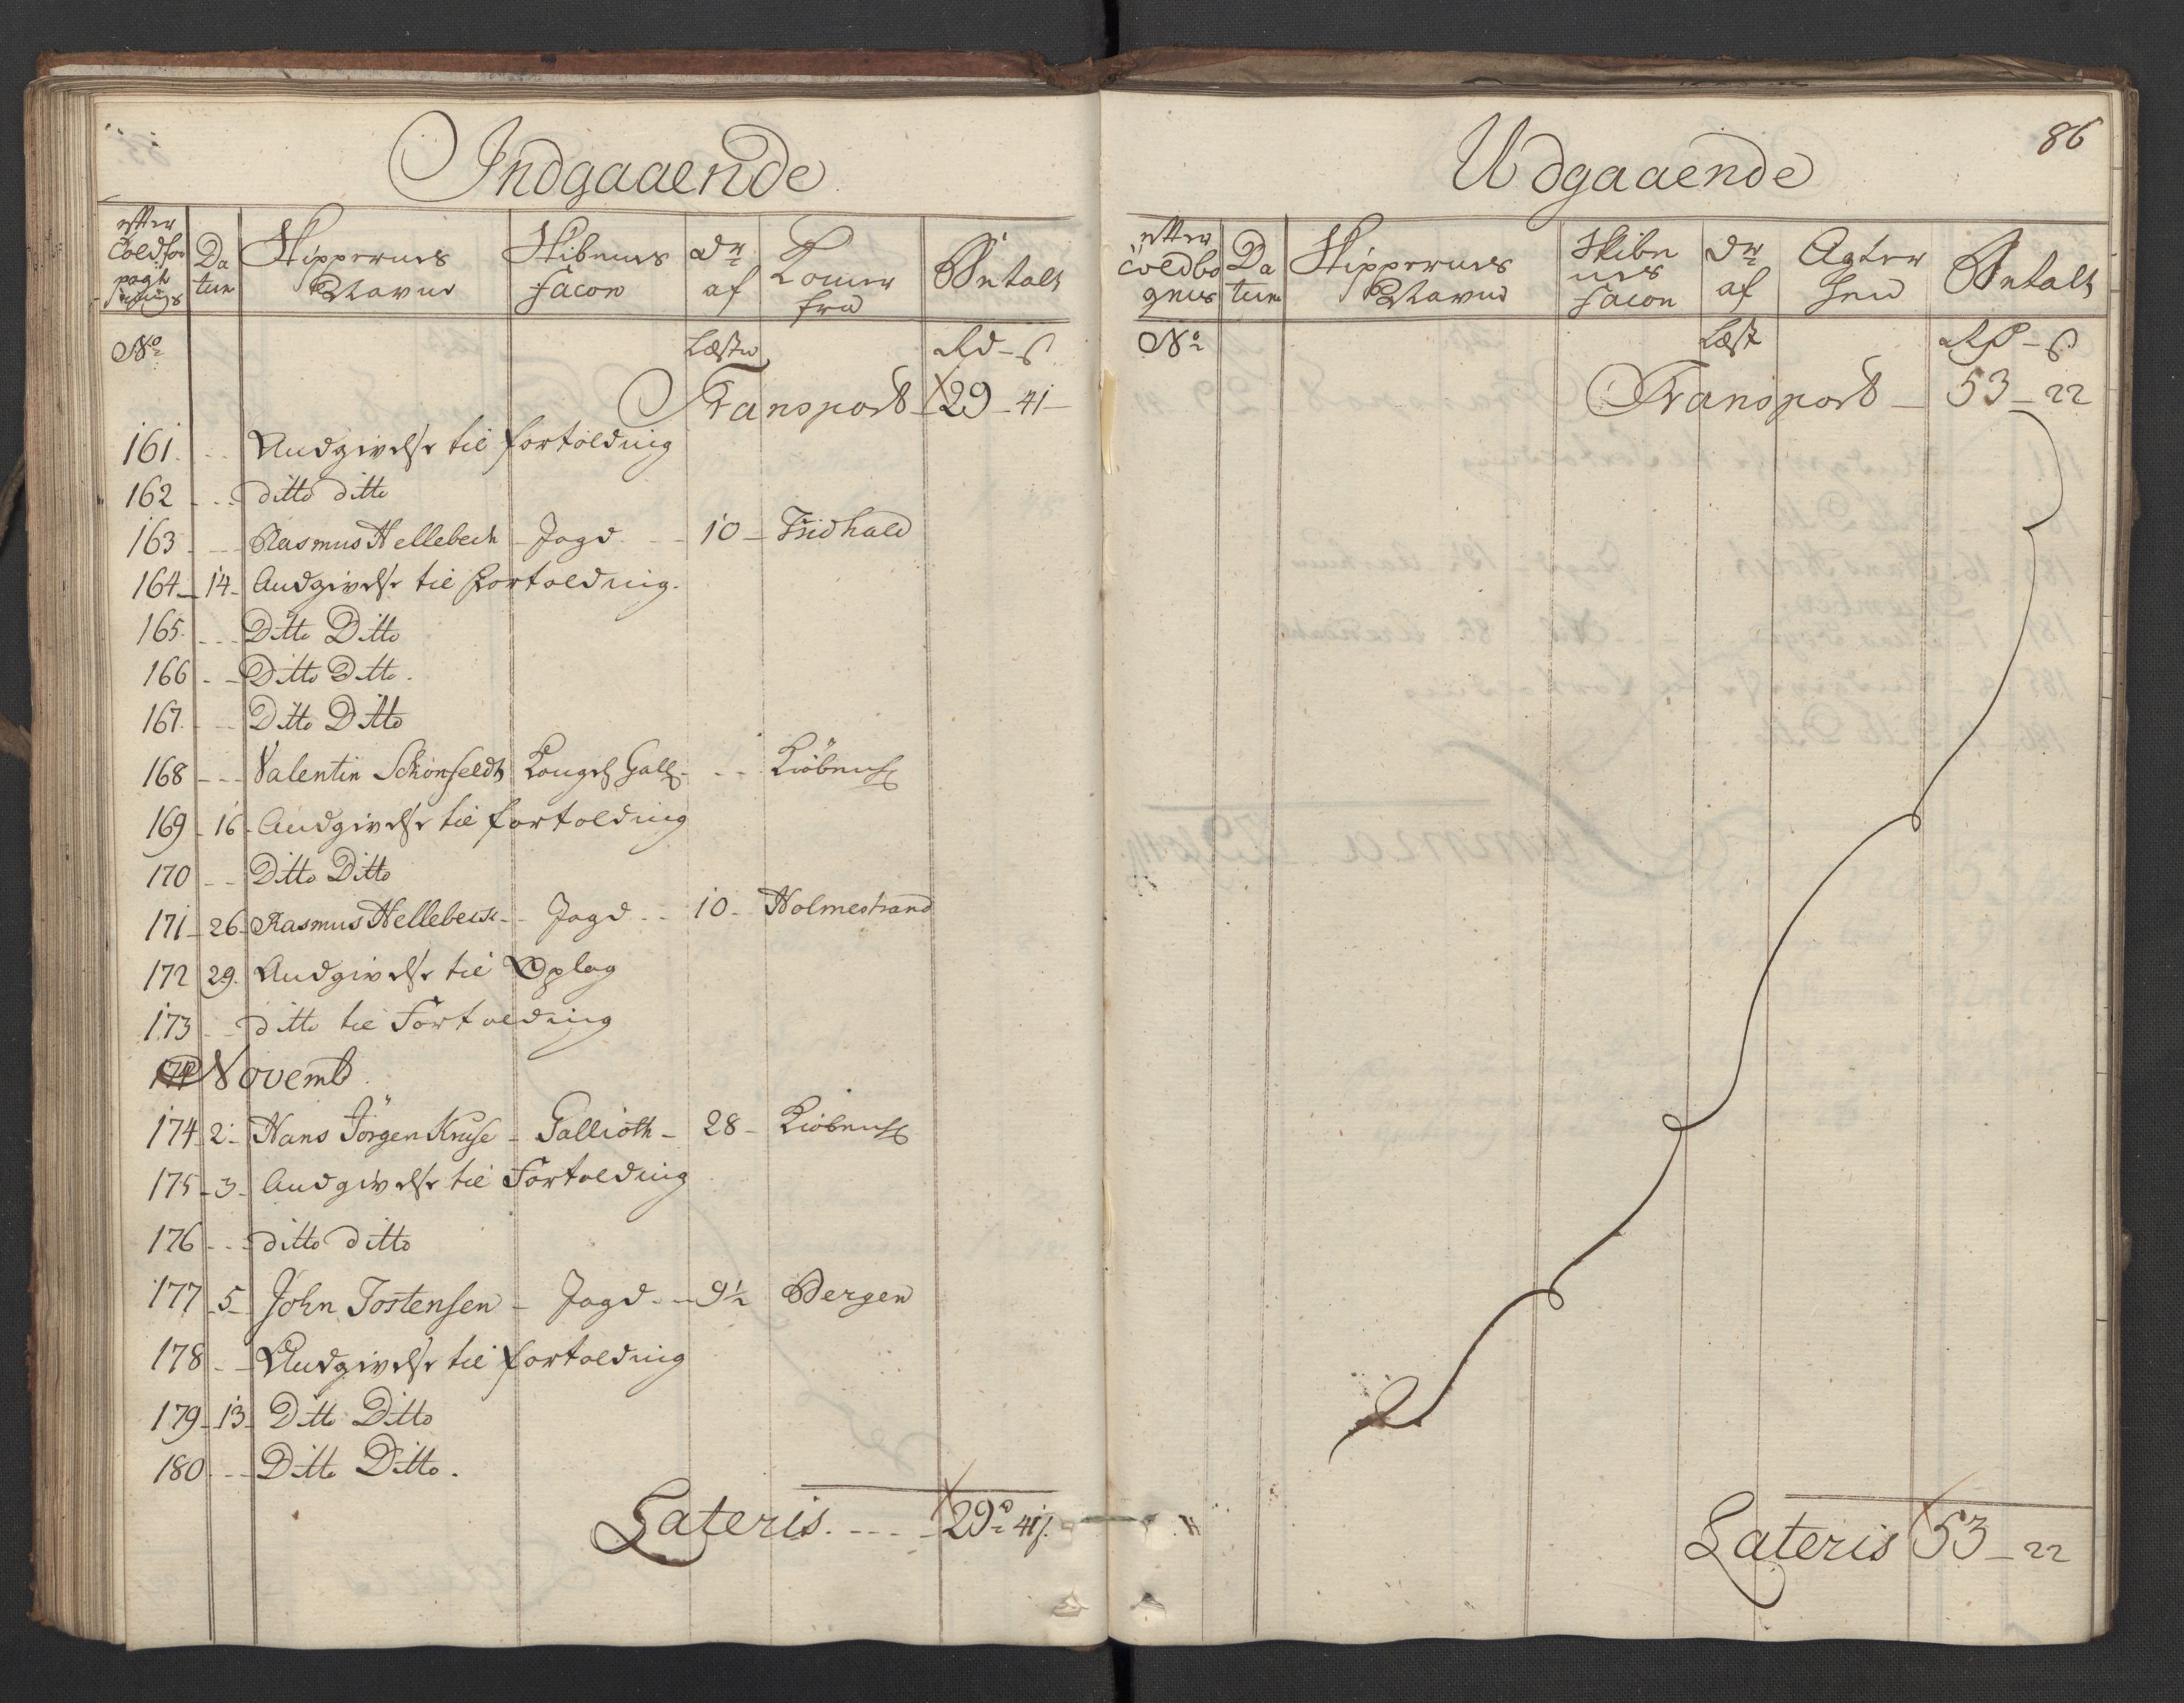 Indgaaende
efter Toldfor
pagt
nings
Da
tum
Skippernes
Navne
Skibenes
facon
Dr
af
Komer
fra
Betalt
No
Læster
Rd - s
Transport 29 - 41
161 Andgivelse til fortolding
162 ditto ditto
163 Rasmus Hellebech Jagd 10 Fridhald
164 14 Andgivelse til Fortolding.
165 Ditto Ditto
166 Ditto Ditto.
167 Ditto Ditto
168 Valentin Schönfeldt Kongel Gall Kiöbenh
169 16 Andgivelse til fortolding
170 Ditto Ditto
171 26 Rasmus Hellebech Jagd 10 Holmestrand
172 29 Andgivelse til Oplag
173 ditto til Fortolding
Novemb
174 2 Hans Jörgen Kruse Gallioth 28 Kiöbenh
175 3 Andgivelse til Fortolding
176 ditto ditto
177 5 John Jostensen Jagd 9½ Bergen
178 Andgivelse til fortolding
179 13 Ditto Ditto
180 Ditto Ditto.
Lateris 29 41
86
Udgaaende
efter
Toldbo
gens
Da
tum
Skippernes
Navne
Skibe
nes
facon
Dr
af
Agter
hen
Betalt
No
Læst
Rd - s
Transport 53 - 22
Lateris 53 - 22